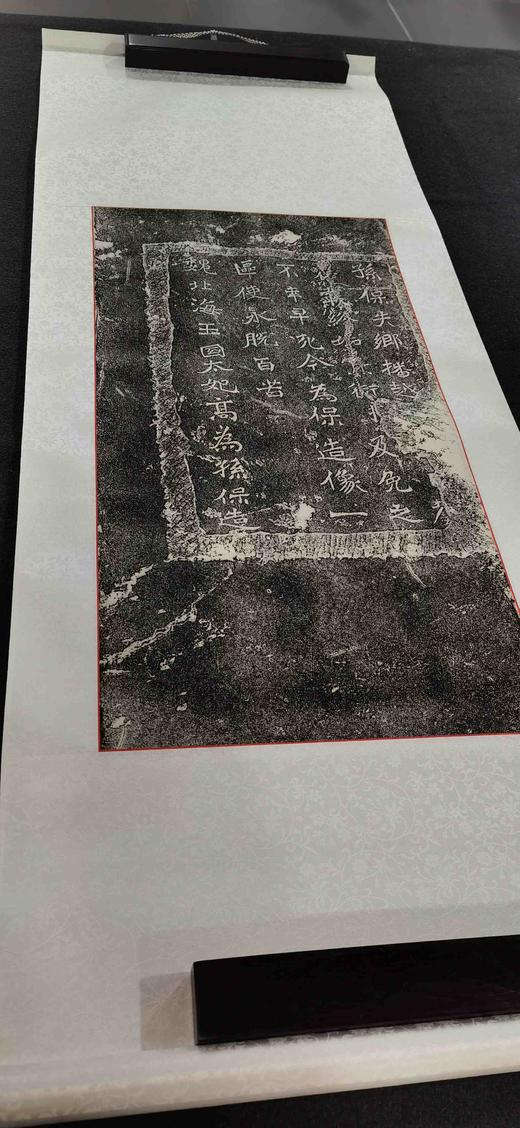 孫保失鄉播越
衛及之
不幸早死今為保造像一
區使永脫百苦
魏北海王國太妃高為孫保造